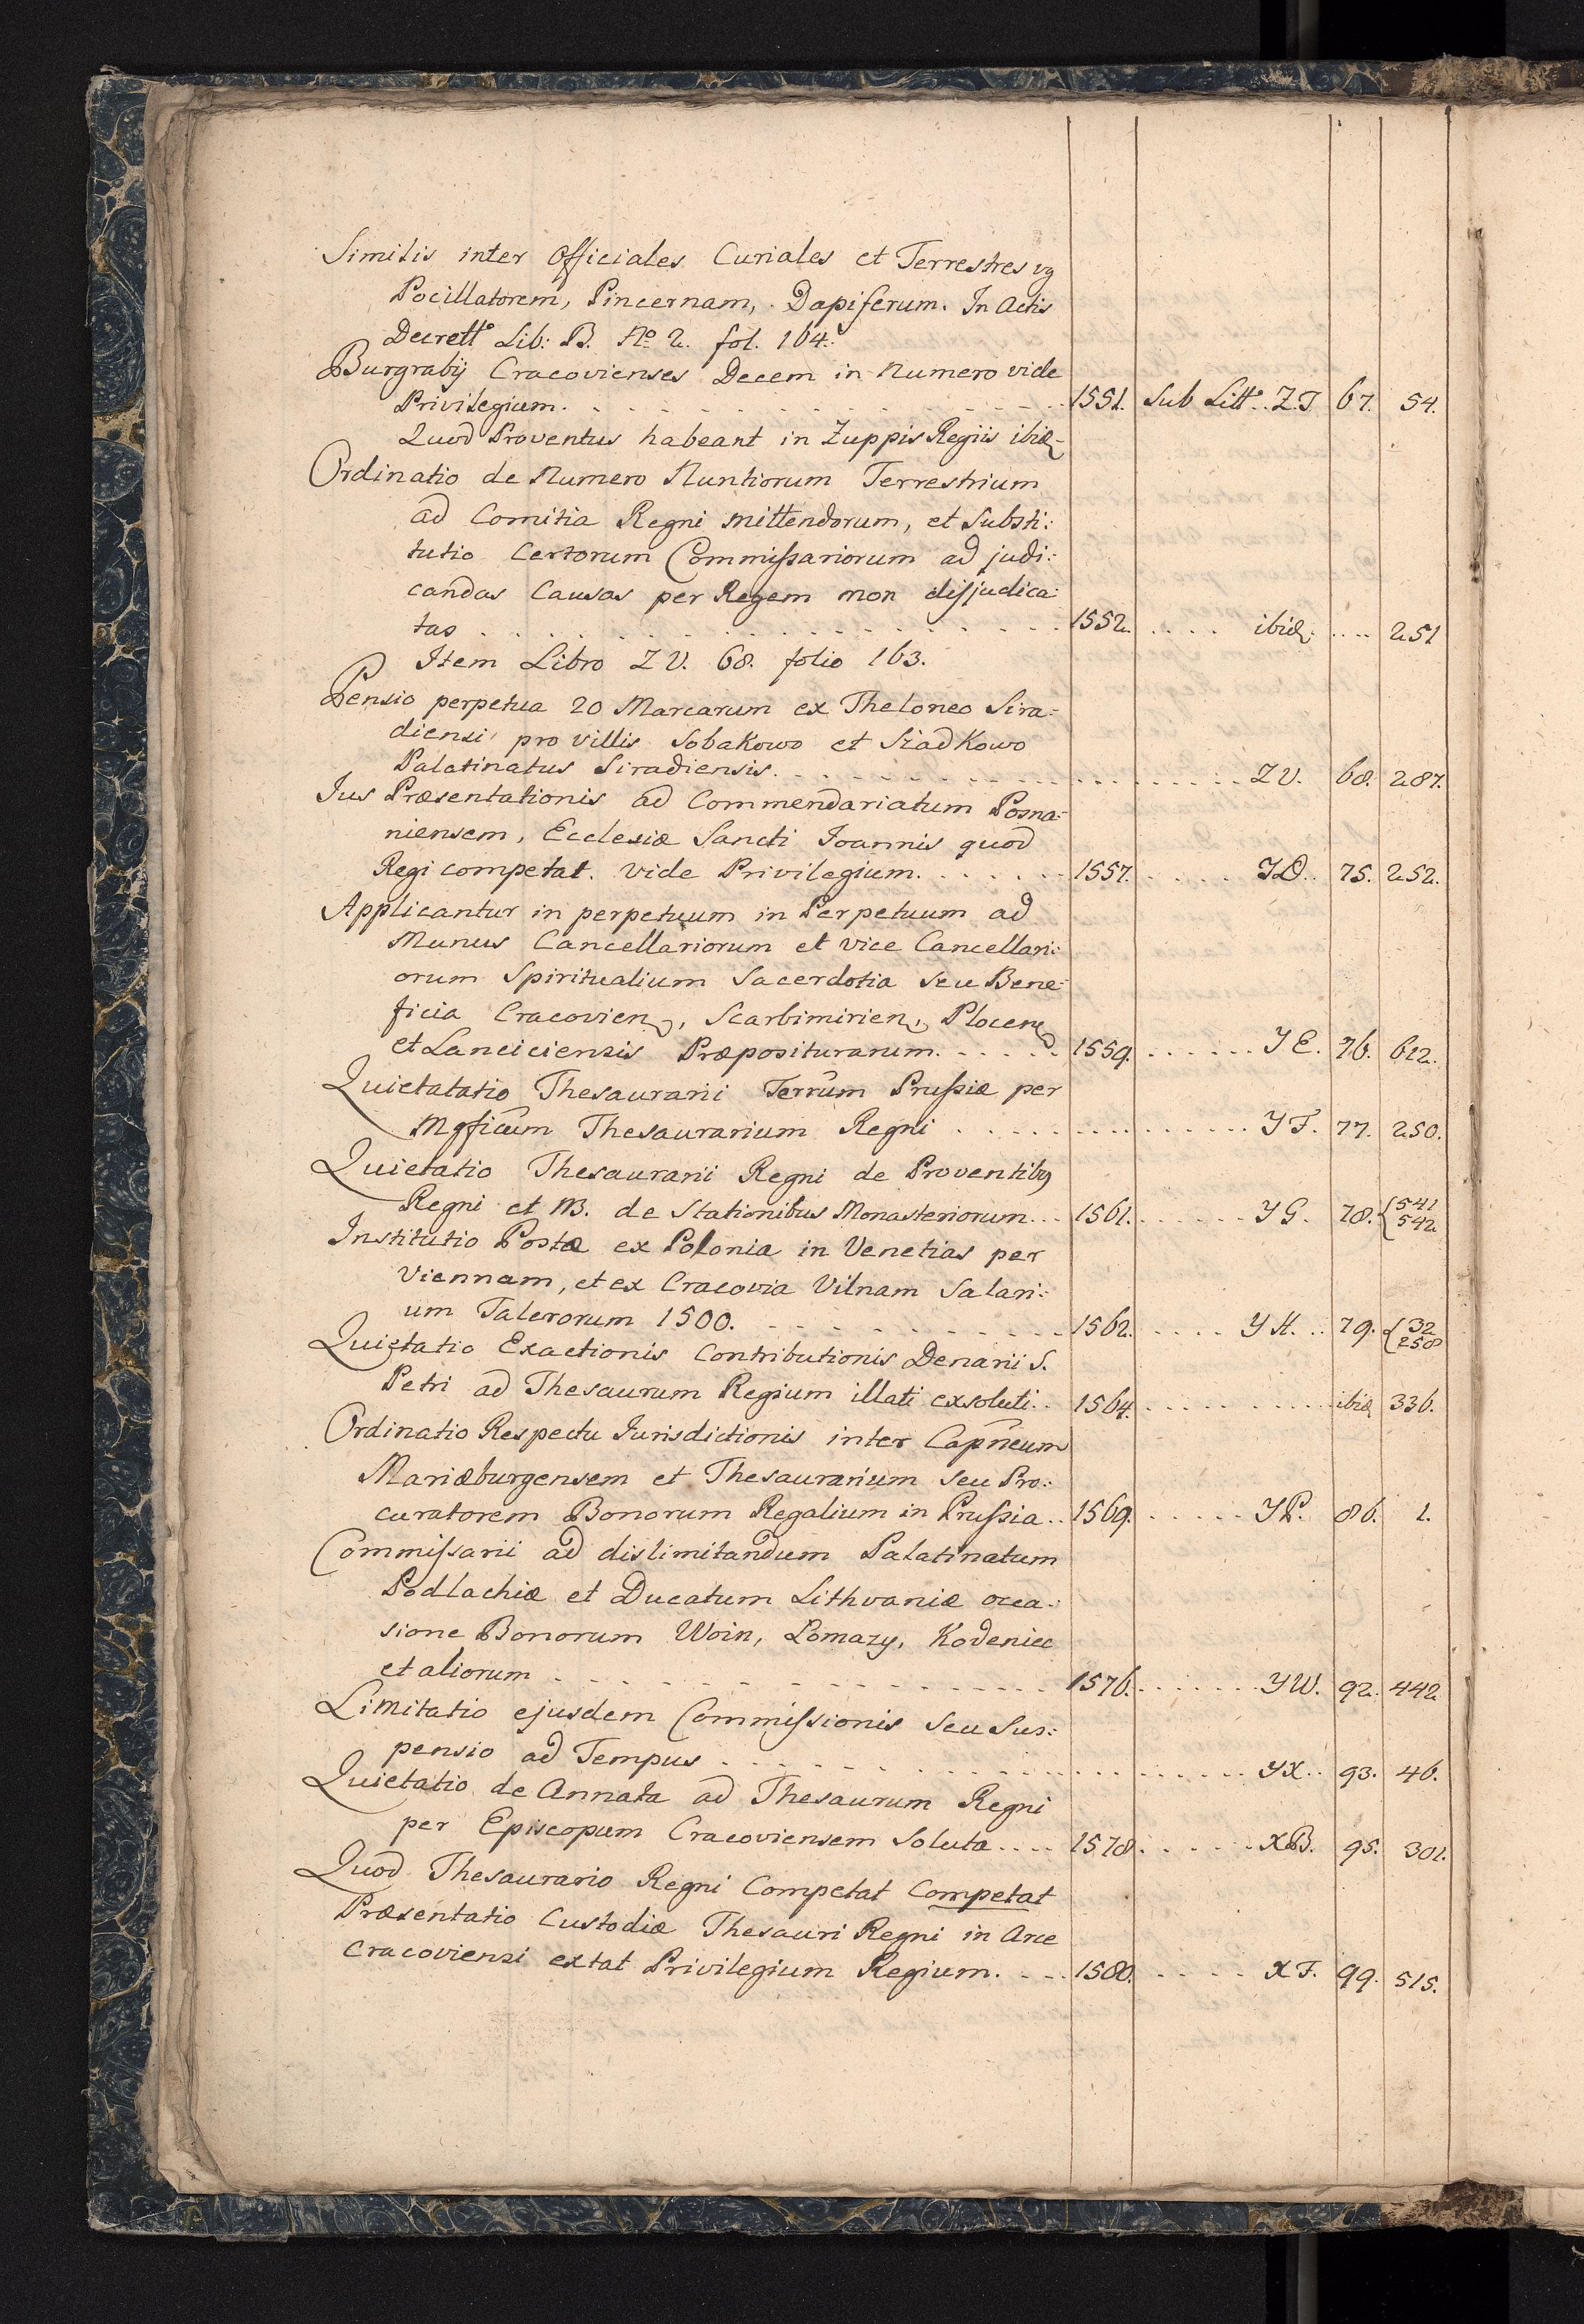 Similis inter Officiales Curiales et Terrestres vg
Pocillatorem, Pincernam, Dapiferum. In Actis
Decrett° Lib: B. No 2. fol. 164.
Burgrabij Cracovienses Decem in Numero vide
Privilegium. 1551. Sub Litt°. ZT 67. 54.
Quod Proventus habeant in Zuppis Regiis ibid
Ordinatio de Numero Nuntiorum Terrestrium
ad Comitia Regni mittendorum, et Substi:
tutio Certorum Commissariorum ad judi:
candas Causas per Regem non disjudica:
tas 1552. ibid. 251
Item Libro ZV. 68. folio 163.
Pensio perpetua 20 Marcarum ex Theloneo Sira:
diensi pro villis Sobakowo et Siadkowo
Palatinatus Siradiensis. ZV. 68. 287.
Jus Præsentationis ad Commendariatum Posna:
niensem, Ecclesiæ Sancti Joannis quod
Regi competat. vide Privilegium. 1557. YD. 75. 252.
Applicantur in perpetuum in Perpetuum ad
Munus Cancellariorum et vice Cancellari:
orum Spiritualium Sacerdotia seu Bene:
ficia Cracovien, Scarbimirien, Plocen
et Lanciciensis Præpositurarum. 1559. YE. 76. 612.
Quietatatio Thesaurarii Terrum Prussiæ per
Mgficum Thesaurarium Regni YF. 77. 250.
Quietatio Thesaurarii Regni de Proventibg
Regni et NB. de Stationibus Monasteriorum. 1561. YG. 78. {541
542
Institutio Postæ ex Polonia in Venetias per
Viennam, et ex Cracovia Vilnam Salari:
um Talerorum 1500. 1562. YH. 79. {32
258
Quietatio Exactionis Contributionis Denarii S.
Petri ad Thesaurum Regium illati exsoluti. 1564. ibid 336.
Ordinatio Respectu Jurisdictionis inter Capneum
Mariæburgensem et Thesaurarium seu Pro:
curatorem Bonorum Regalium in Prussia.. 1569. YP. 86. 1.
Commissarii ad dislimitandum Palatinatum
Podlachiæ et Ducatum Lithvaniæ occa:
sione Bonorum Woin, Lomazy, Kodeniec
et aliorum 1576. YW. 92. 442
Limitatio ejusdem Commissionis seu Sus:
pensio ad Tempus YX. 93. 46.
Quietatio de Annata ad Thesaurum Regni
per Episcopum Cracoviensem Soluta.... 1578. XB. 95. 301.
Quod Thesaurario Regni Competat Competat
Præsentatio Custodiæ Thesauri Regni in Arce
Cracoviensi extat Privilegium Regium. 1580. XF. 99. 515.